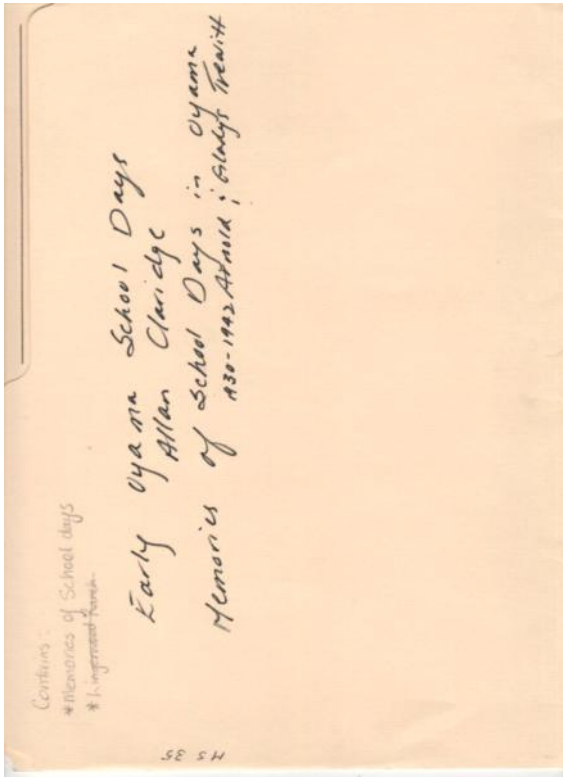 Contains:
* Memories of School days
* Lingerwood Ranch
Early Oyama School Days
Allan Claridge
Memories of School Days in Oyama
1930-1942 Arnold & Gladys Trewitt
MS 35